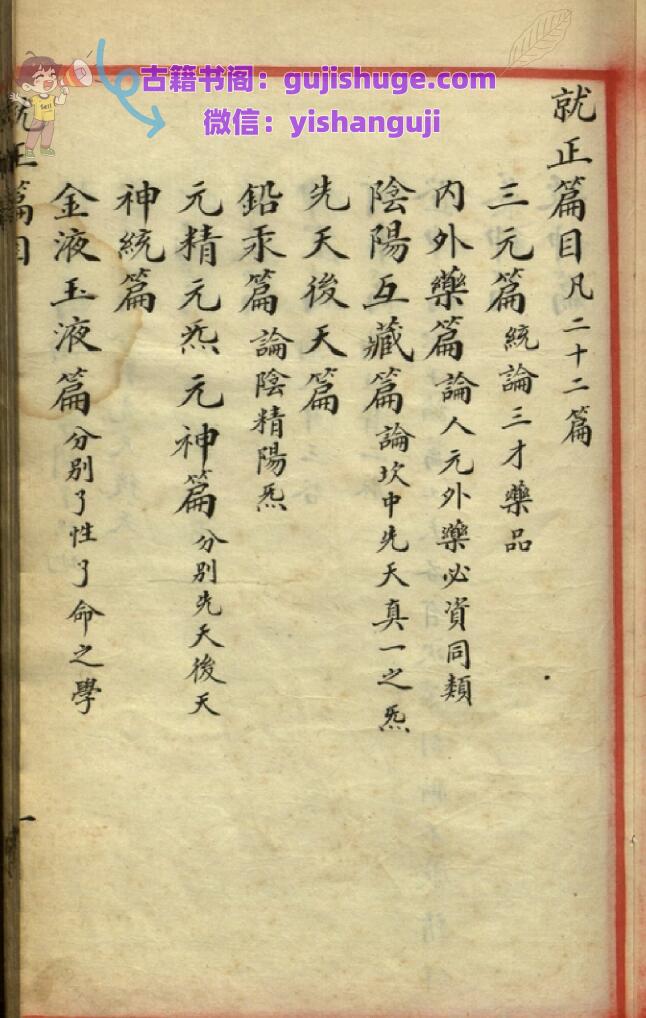 古籍书阁：gujishuge.com
微信：yishanguji
Sell
就正篇目凡二十二篇
三元篇統論三才藥品
内外藥篇論人元外藥必資同類
陰陽互藏篇論坎中先天真一之炁
先天後天篇
鉛汞篇論陰精陽炁
元精元炁元神篇分別先天後天
神統篇
金液玉液篇分別了性了命之學
就正篇目
一